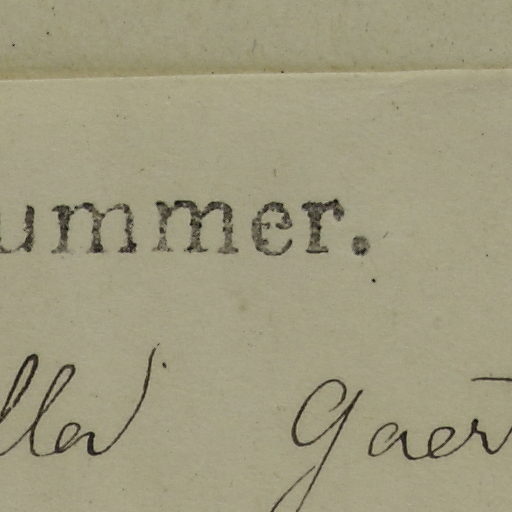 ummer.
llad Gaer